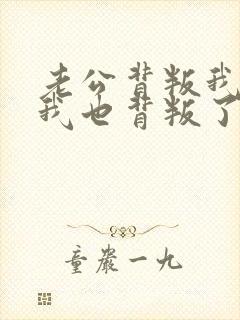 老公背叛我
我也背叛了
童严一九